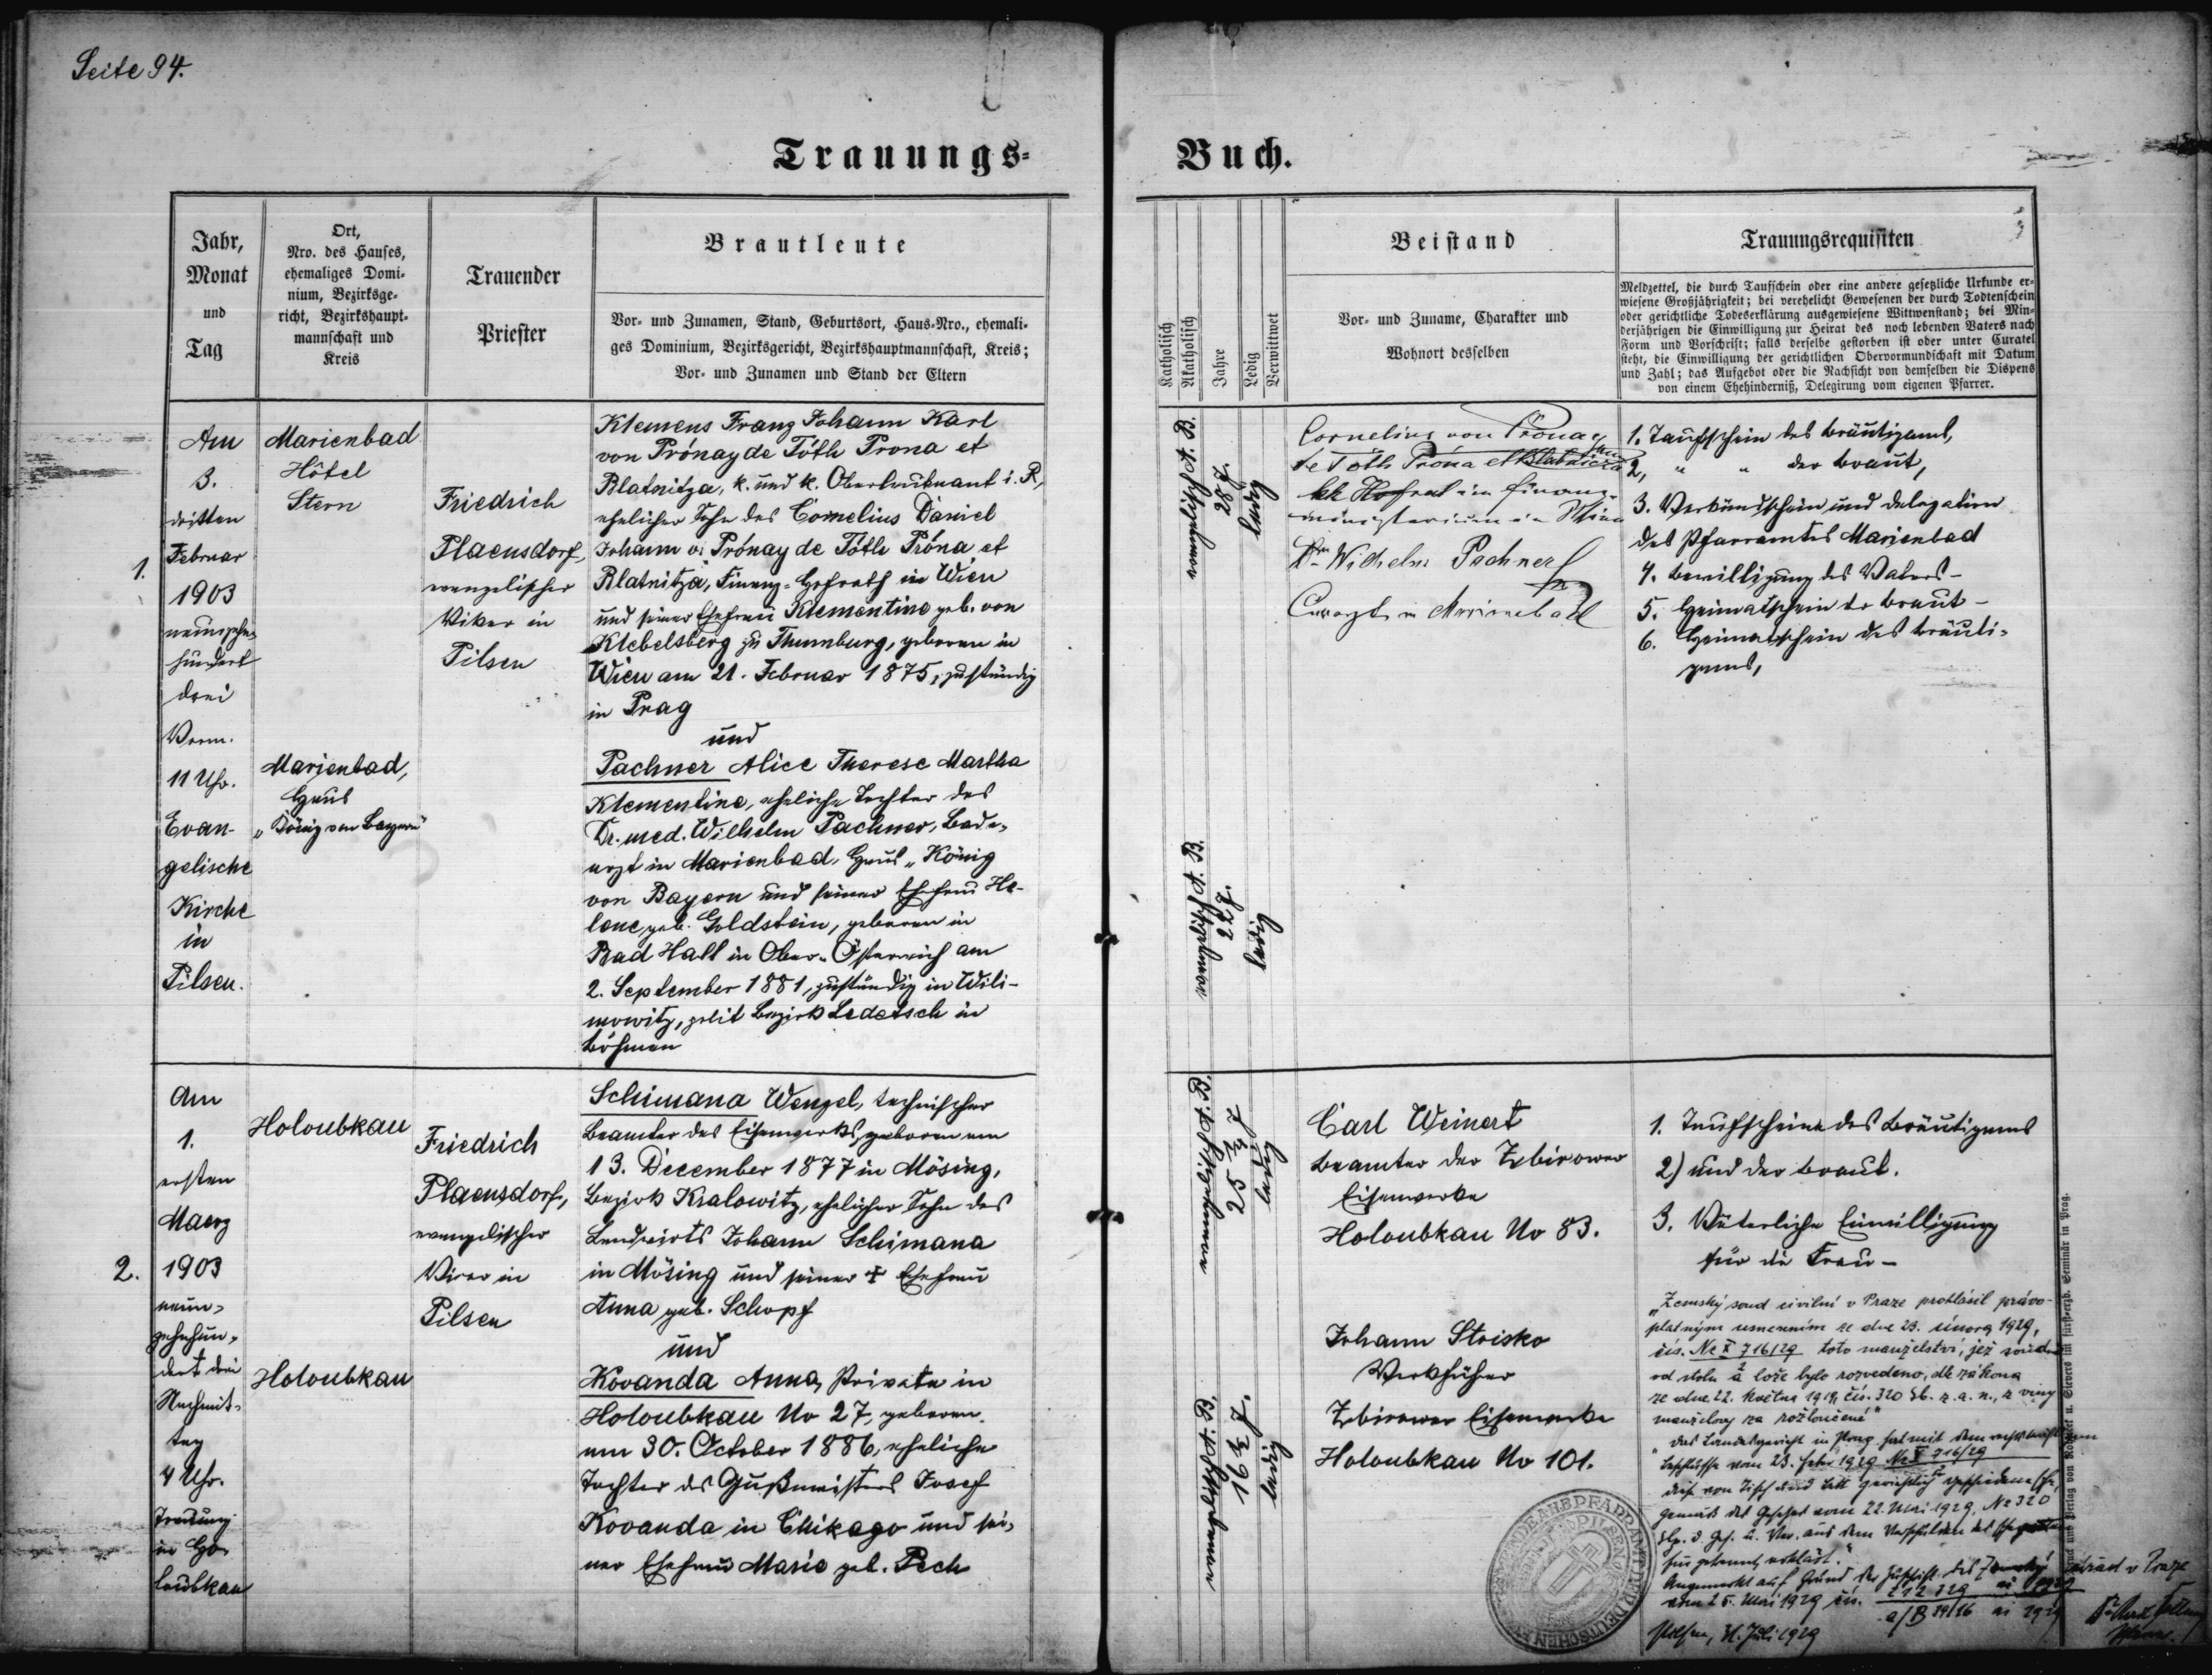 Seite 94.
Trauungs-
Buch.
Jahr,
Monat
und
Tag
Ort,
Nro. des Hauses,
ehemaliges Domi-
nium, Bezirksge-
richt, Bezirkshaupt-
mannschaft und
Kreis
Trauender
Priester
Brautleute
Vor- und Zunamen, Stand, Geburtsort, Haus-Nro., ehemali-
ges Dominium, Bezirksgericht, Bezirkshauptmannschaft, Kreis;
Vor- und Zunamen und Stand der Eltern
Katholisch
Akatholisch
Jahre
Ledig
Verwittwet
Beistand
Vor- und Zuname, Charakter und
Wohnort desselben
Trauungsrequisiten
Meldzettel, die durch Taufschein oder eine andere gesetzliche Urkunde er-
wiesene Großjährigkeit; bei verehelicht Gewesenen der durch Todtenschein
oder gerichtliche Todeserklärung ausgewiesene Wittwenstand; bei Min-
derjährigen die Einwilligung zur Heirat des noch lebenden Vaters nach
Form und Vorschrift; falls derselbe gestorben ist oder unter Curatel
steht, die Einwilligung der gerichtlichen Obervormundschaft mit Datum
und Zahl; das Aufgebot oder die Nachsicht von demselben die Dispens
von einem Ehehinderniß, Delegirung vom eigenen Pfarrer.
1.
Am
3.
dritten
Februar
1903
neunzehn-
hundert
drei
Vorm.
11 Uhr.
Evan-
gelische
Kirche
in
Pilsen.
Marienbad
Hôtel
Stern
Marienbad,
Haus
„König von Bayern"
Friedrich
Plaensdorf,
evangelischer
Vikar in
Pilsen
Klemens Franz Johann Karl
von Prónay de Tóth Prona et
Blatnitza, k. und k. Oberleutnant i. R,
ehelicher Sohn des Cornelius Daniel
Johann v. Prónay de Tóth Próna et
Blatnitza, Finanz-Hofrath in Wien
und seiner Ehefrau Klementine geb. von
Klebelsberg zu Thumburg, geboren in
Wien am 21. Februar 1875, zuständig
in Prag
und
Pachner Alice Therese Martha
Klementine, eheliche Tochter des
Dr. med. Wilhelm Pachner, Bade-
arzt in Marienbad, Haus „König
von Bayern und seiner Ehefrau He-
lene geb. Goldstein, geboren in
Bad Hall in Ober-Österreich am
2. September 1881, zuständig in Wili-
mowitz, polit Bezirk Ledetsch in
Böhmen
evangelisch A. B.
28 J.
ledig
evangelisch A. B.
22 J.
ledig
Cornelius von Prónay
de Tóth Próna et Blatnicza
kk Hofrat im Finanz-
ministerium in Wien
Dr. Wilhelm Pachner
Curarzt in Marienbad
1. Taufschein des Bräutigams,
2, " " der Braut,
3. Verkündschein und Delegation
des Pfarramtes Marienbad
4. Bewilligung des Vaters -
5. Heimatschein der Braut -
6. Heimatschein des Bräuti-
gams,
2.
Am
1.
ersten
Maerz
1903
neun-
zehnhun-
dert drei
Nachmit-
tag
4 Uhr.
Trauung
in Ho-
loubkau
Holoubkau
Holoubkau
Friedrich
Plaensdorf,
evangelischer
Vicar in
Pilsen
Schimana Wenzel, technischer
Beamter des Eisenwerks, geboren am
13. December 1877 in Mösing,
Bezirk Kralowitz, ehelicher Sohn des
Landwirts Johann Schimana
in Mösing und seiner + Ehefrau
Anna geb. Schopf
und
Kovanda Anna, Private in
Holoubkau No 27, geboren
am 30. October 1886, eheliche
Tochter des Gußmeisters Josef
Kovanda in Chikago und sei-
ner Ehefrau Marie geb. Pech
evangelisch A. B.
25 ¼ J
ledig
evangelisch A. B.
16 ⅓ J.
ledig
Carl Weinert
Beamter der Zbirower
Eisenwerke
Holoubkau No 83.
Johann Strisko
Werkführer
Zbirower Eisenwerke
Holoubkau No 101.
1. Taufscheine des Bräutigams
2) und der Braut.
3. Väterliche Einwilligung
für die Frau -
"Zemský soud civilní v Praze prohlásil právo-
platným usnesením ze dne 23. února 1929,
čís. Nc X 716/29 toto manželství, jež soudně
od stolu a lože bylo rozvedeno, dle zákona
ze dne 22. května 1919, čís. 320 Sb. z. a. n., z viny
manželovy za rozloučené"
"Das Landesgericht in Prag hat mit dem
Beschlusse vom 23. Febr 1929 Nc X 716/29
die von Tisch und Bett gerichtlich geschiedene Ehe
gemäß des Gesetzes vom 22. Mai 1919, No 320
Slg. d Ges. u. Ver. aus dem Verschulden des
für getrennt erklärt."
Angemerkt auf Grund der Zuschrift des v Praze
vom 25. Mai 1929 čís.
Pilsen, 31. Juli 1929